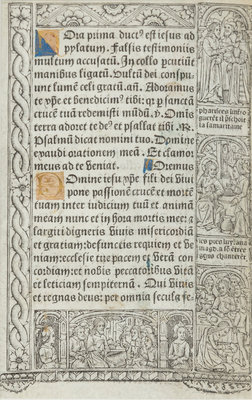 Ora prima duct⁹ est iesus ad
pylatum. Falsis testimoniis
multum accusatū. In collo pcutiūt
manibus ligatū. Vultū dei conspu-
unt lumē celi gratū. añ. Adoramus
te xp̄e et benedicim⁹ tibi: q̄r p sanctā
crucē tuā redemisti mūdū. v. Omīs
terra adoret te de⁹ et psallat tibi. R.
Psalmū dicat nomini tuo. Domine
exaudi orationem meā. Et clamor
meus ad te veniat. Oremus
Domine iesu xp̄e fili dei viui
pone passionē crucē et mortē
tuam inter iudicium tuū et animā
meam nunc et in hora mortis mee: et
largiri digneris viuis misericordiā
et gratiam: defunctis requiem et ve
niam: ecclesie tue pacem et verā con
cordiam: et nobis peccatoribus vitā
et leticiam sempiternā. Qui viuis
et regnas deus: per omnia secula se-
la samaritane
magd.